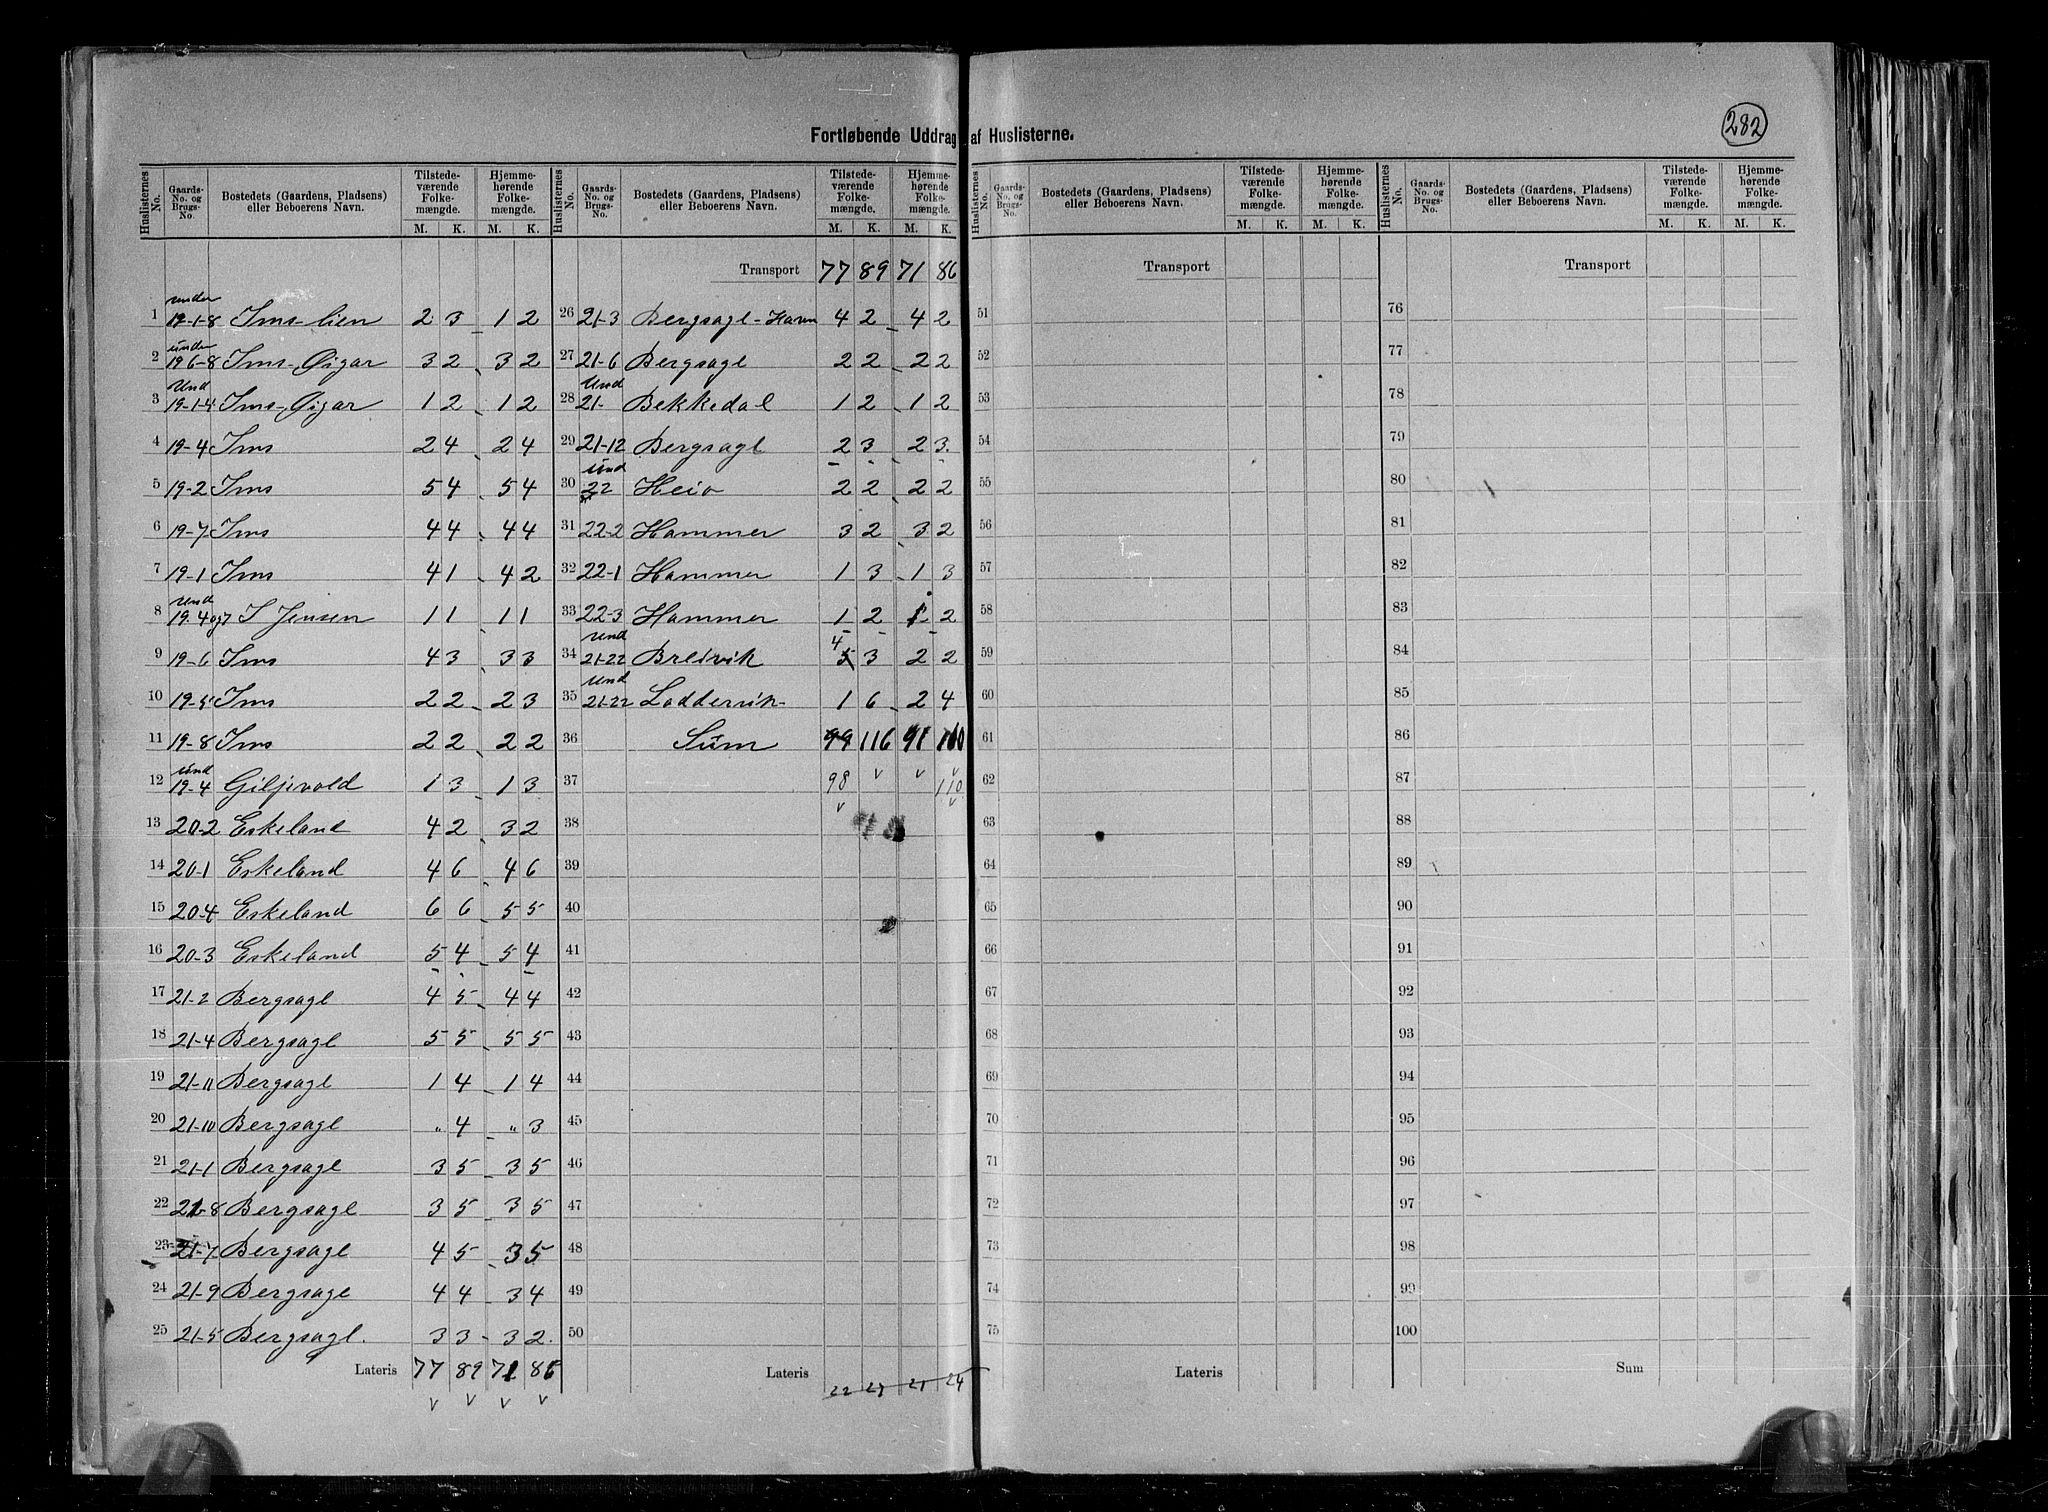 282
Fortløbende Uddrag af Huslisterne.
Huslisternes No. | Gaards-No. og Brugs-No. | Bostedets (Gaardens, Pladsens) eller Beboerens Navn. | Tilstede-værende Folke-mængde. M. K. | Hjemme-hørende Folke-mængde. M. K.
1 under 19-1-8 Ims-lien 2 3 - 1 2
2 under 19 6-8 Ims-Øigar 3 2 - 3 2
3 Und 19-1-4 Ims-Øigar 1 2 - 1 2
4 19-4 Ims 2 4 - 2 4
5 19-2 Ims 5 4 - 5 4
6 19-7 Ims 4 4 - 4 4
7 19-1 Ims 4 1 - 4 2
8 Und 19.4 og 7 I Jensen 1 1 - 1 1
9 19-6 Ims 4 3 - 3 3
10 19-5 Ims 2 2 - 2 3
11 19-8 Ims 2 2 - 2 2
12 Und 19-4 Giljevold 1 3 - 1 3
13 20-2 Eskeland 4 2 - 3 2
14 20-1 Eskeland 4 6 - 4 6
15 20-4 Eskeland 6 6 - 5 5
16 20-3 Eskeland 5 4 - 5 4
17 21-2 Bergsagl 4 5 - 4 4
18 21-4 Bergsagl 5 5 - 5 5
19 21-11 Bergsagl 1 4 - 1 4
20 21-10 Bergsagl " 4 - " 3
21 21-1 Bergsagl 3 5 - 3 5
22 21-8 Bergsagl 3 5 - 3 5
23 21-7 Bergsagl 4 5 - 3 5
24 21-9 Bergsagl 4 4 - 3 4
25 21-5 Bergsagl. 3 3 - 3 2.
Lateris 77 89 71 86
v v v v
Huslisternes No. | Gaards-No. og Brugs-No. | Bostedets (Gaardens, Pladsens) eller Beboerens Navn. | Tilstede-værende Folke-mængde. M. K. | Hjemme-hørende Folke-mængde. M. K.
Transport 77 89 71 86
26 21-3 Bergsagl-Havn 4 2 - 4 2
27 21-6 Bergsagl 2 2 - 2 2
28 Und 21- Bekkedal 1 2 - 1 2
29 21-12 Bergsagl 2 3 - 2 3.
30 Und 22 Heia 2 2 - 2 2
31 22-2 Hammer 3 2 - 3 2
32 22-1 Hammer 1 3 - 1 3
33 22-3 Hammer 1 2 1 - 2
34 Und 21-22 Breivik 4 5 3 - 2 2
35 Und 21-22 Laddervik - 1 6 - 2 4
36 Sum 99 116 91 110
37 98 v v v 110
v v
38
39
40
41
42
43
44
45
46
47
48
49
50
Lateris 22 27 21 24
Huslisternes No. | Gaards-No. og Brugs-No. | Bostedets (Gaardens, Pladsens) eller Beboerens Navn. | Tilstede-værende Folke-mængde. M. K. | Hjemme-hørende Folke-mængde. M. K.
Transport
51
52
53
54
55
56
57
58
59
60
61
62
63
64
65
66
67
68
69
70
71
72
73
74
75
Lateris
Huslisternes No. | Gaards-No. og Brugs-No. | Bostedets (Gaardens, Pladsens) eller Beboerens Navn. | Tilstede-værende Folke-mængde. M. K. | Hjemme-hørende Folke-mængde. M. K.
Transport
76
77
78
79
80
81
82
83
84
85
86
87
88
89
90
91
92
93
94
95
96
97
98
99
100
Sum